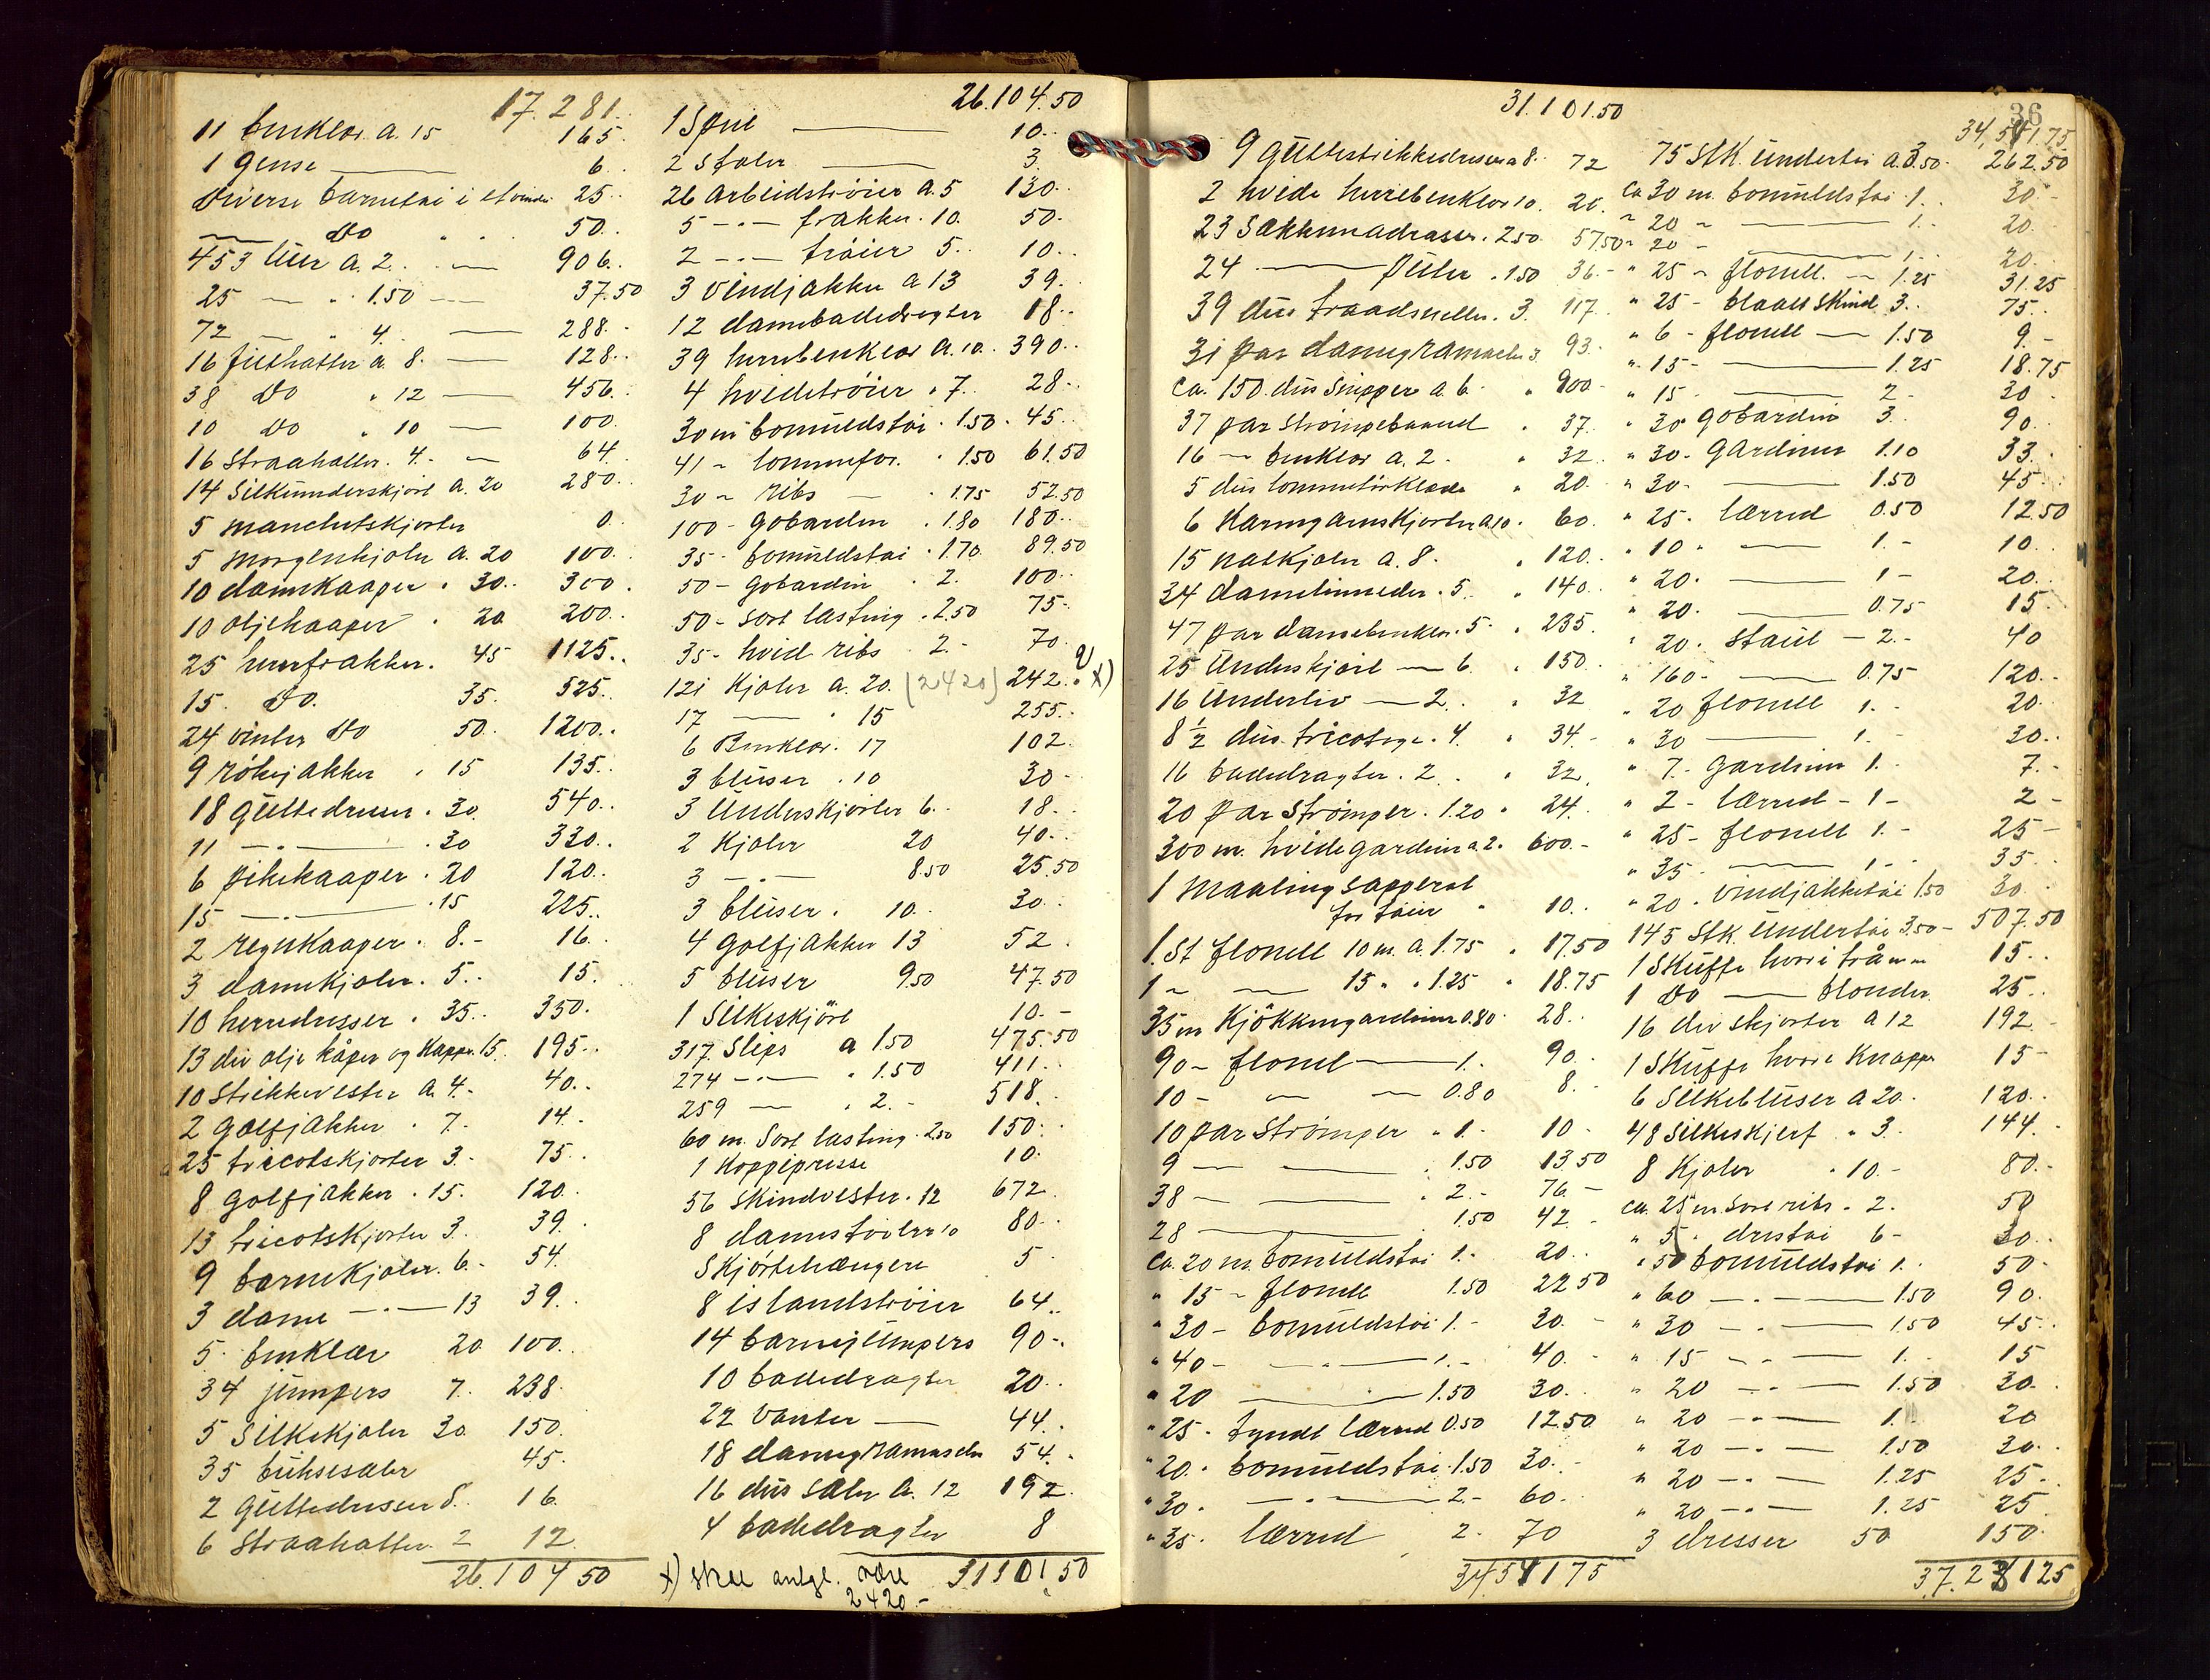 17.281..
11 benklær a. 15 165.
1 Gense 6..
Diverse barnetøi i et vindu 25..
Do 50..
453 Luer a. 2. 906..
25 — 1.50 37.50
72 — 4. 288.-
16 filthatter a 8. 128..
38 Do " 12 456..
10 Do " 10 100.
16 Straahatter. 4. 64.
14 Silkeunderskjørt a. 20 280..
5 manchetskjorter 0.
5 Morgenkjoler a. 20 100.
10 damekaaper . 30.. 300.
10 oljekaaper . 20 200..
25 herrfrakker. 45 1125..
15. Do. 35. 525..
24 vinter Do 50.. 1200..
9 röikjakker . 15 135..
18 guttedresser . 30. 540..
11 — . 30 330..
6 pikekaaper . 20 120..
15 — . 15 225..
2 regnkaaper . 8.- 16..
3 damekjoler. 5.. 15.
10 herredresser . 35.. 350.
13 div olje kåper og Kapper. 15. 195..
10 Strikkevester a. 4.- 40..
2 golfjakker . 7. 14..
25 tricotskjorter 3.- 75..
8 golfjakker . 15. 120.
13 tricotskjorter 3. 39.
9 barnekjoler. 6.- 54.
3 dame — 13 39..
5 benklær 20 100.
34 jumpers 7. 238.
5 Silkekjoler 30. 150.
35 buksesæler 45.
2 Guttedresser 8.. 16.
6 Straahatter 2 12.
26.104 50
26.104.50
1 Speil 10..
2 Stoler 3.
26 Arbeidstrøier a. 5 130..
5 —"— frakker. 10. 50.
2 —"— trøier 5. 10..
3 Vindjakker a 13 39.
12 damebadedragter 18..
39 herrebenklær a. 10. 390..
4 hvedetrøier . 7. 28..
30 m bomuldstøi . 1.50 . 45..
41 " lommefor. . 1.50 61.50
30 " ribs . 1.75 52.50
100 - Gobardin . 1.80 180..
35 - bomuldstøi . 1.70. 89.50
50 - Gobardin . 2. 100..
50 - Sort lasting . 2.50 75..
35 - hvid ribs . 2.- 70.
121 Kjoler a. 20. (2420) 242.. x)
17 — . 15 255..
6 Benklær. 17 102.
3 bluser . 10 30-
3 Underskjorter 6.. 18..
2 Kjoler 20 40..
3 —"— 8.50 25.50
3 bluser . 10.. 30..
4 Golfjakker 13 52.
5 bluser 9.50 47.50
1 Silkeskjört 10.-
317. Slips a 1.50 475.50
274 —"— . 1.50 411..
259 — . 2.- 518..
60 m. Sort lasting . 2.50 150..
1 Koppipresse 10.
56 Skindvester . 12 672.
8 damestøvler 10 80..
Skjørtehængere 5
8 islandstrøier 64..
14 barnejumpers 90-.
10 badedragter 20..
22 Vanter 44.
18 damegramascher 54..
16 dus sæler a. 12 192.
4 badedragter 8
x) skal antgl. være 2420.- 31101.50
31.101.50
9 Guttestrikkedresser a 8.. 72
2 hvide herrebenklær 10. 20.
23 Sækkemadrasser. 2.50. 57.50
24 — Puter . 1.50 36.-
39 dus traadsneller. 3. 117.
31 par damegramascher 3. 93.
Ca. 150. dus Snipper a. 6. " 900-
37 par Strømpebaand " 37.
16 — benklær a. 2. " 32.
5 dus lommetørklæder " 20.
6 Kamgarnskjorter a 10. " 60.
15 natkjoler a. 8. " 120..
34 damelinneder . 5. " 140..
47 par damebenklær. 5. " 235.
25 Underskjørt — 6. " 150.
16 Underliv — 2.. " 32
8 1/2 dus. tricotage . 4. " 34.-
16 badedragter . 2. . " 32.
20 par Strømper . 1.20 " 24.
300 m. hvide gardiner a 2. 600.-
1 Maalingsapperat
for tøier " 10..
1. St flonell 10 m. a. 1.75 " 17.50
1 " — 15 " . 1.25 " 18.75
35 m Kjökkengardiner 0.80. 28..
90 - flonel — 1. 90..
10 - — 0.80 8.-
10 par Strömper . 1.- 10-
9 — . 1.50 13.50
38 — . 2.- 76.-
28 — 1.50 42.-
Ca 20 m. bomuldstøi 1.. 20..
" 15 - flonell 1.50 22.50
" 30 - bomuldstøi 1.- 30.-
" 40 - — 1.- 40.-
" 20 — 1.50 30..
" 25 . tyndt lærred 0.50 12.50
" 20. . bomuldstøi. 1.50 30..
" 30 . — 2.- 60..
" 35 . lærred 2- 70
34541 75
36
34,541.75
75 Stk. Undertøi a. 3.50. 262.50
Ca 30 m. bomuldstøi . 1.. 30.-
" 20 " — 1.- 20.
" 20 - — 1.. 20.
" 25 - flonell. — 1.25 31.25
" 25 - blaat Skind 3.. 75..
" 6 - flonell — 1.50 9.-
" 15 - — 1.25 18.75
" 15 . — 2- 30.
" 30 gobardin 3. 90..
" 30 - Gardiner 1.10 33..
" 30 - — 1.50 45..
" 25 . lærred 0.50 12.50
" 10 " — 1.- 10..
" 20 . — 1- 20..
" 20. — 0.75 15.
" 20 . Staut — 2.- 40
" 160 - — 0.75 120..
" 20 flonell 1.- 20.
" 30 — 1.- 30..
" 7. - gardiner 1.- 7.-
" 2 - lærred - 1- 2-
" 25 - flonell 1.- 25-
" 35 . — 1-. 35..
" 20 . Vindjakketøi 1.50 30..
145 Stk. Undertøi 3.50- 507.50
1 Skuffe hvori 15..
1 Do — blonder 25..
16 div skjorter a 12 192.-
1 Skuffe hvori Knapper 15-
6 Silkebluser a 20. 120..
48 Silkeskjerf . 3. 144.-
8 Kjoler . 10.- 80.-
Ca. 25 m. Sort ribs . 2. 50
" 5 . drestøi 6- 30..
" 50 bomuldstøi 1.. 50-
" 60 —"— 1.50 90.
" 30 —"— 1.50 45..
" 15 —"— 1.- 15
" 20 —"— 1.50 30..
" 20 —"— 1.- 20
" 20 —"— 1.50 30..
" 20 —"— 1.25 25-
" 20 —"— 1.25 25.
3 dresser 50 150.
37.281 25